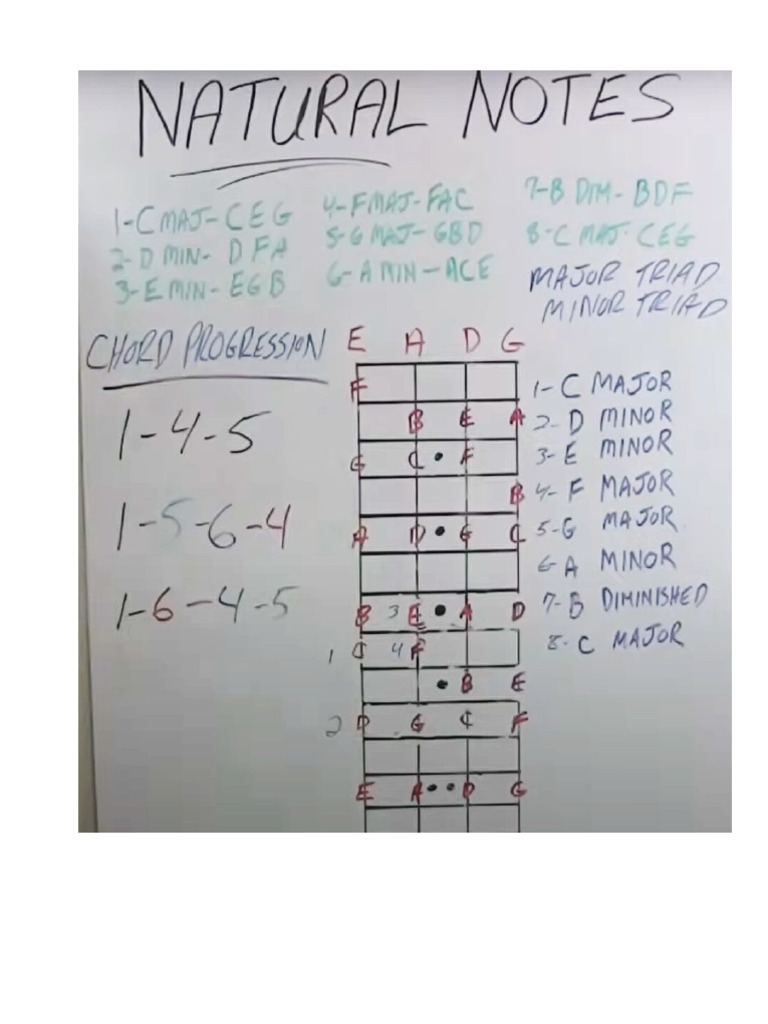 NATURAL NOTES
1-C MAJ-CEG
2-D MIN- DFA
3-E MIN-EGB
4-F MAJ-FAC
5-G MAJ-GBD
6-A MIN-ACE
7-B DIM-BDF
8-C MAJ-CEG
MAJOR TRIAD
MINOR TRIAD
CHORD PROGRESSION
1-4-5
1-5-6-4
1-6-4-5
E A D G
F
B E A
G C F
B
A D G C
B 3 E A D
1 C 4 F
B E
2 D G C F
E A D G
1- C MAJOR
2- D MINOR
3- E MINOR
4- F MAJOR
5-G MAJOR
6-A MINOR
7-B DIMINISHED
8- C MAJOR